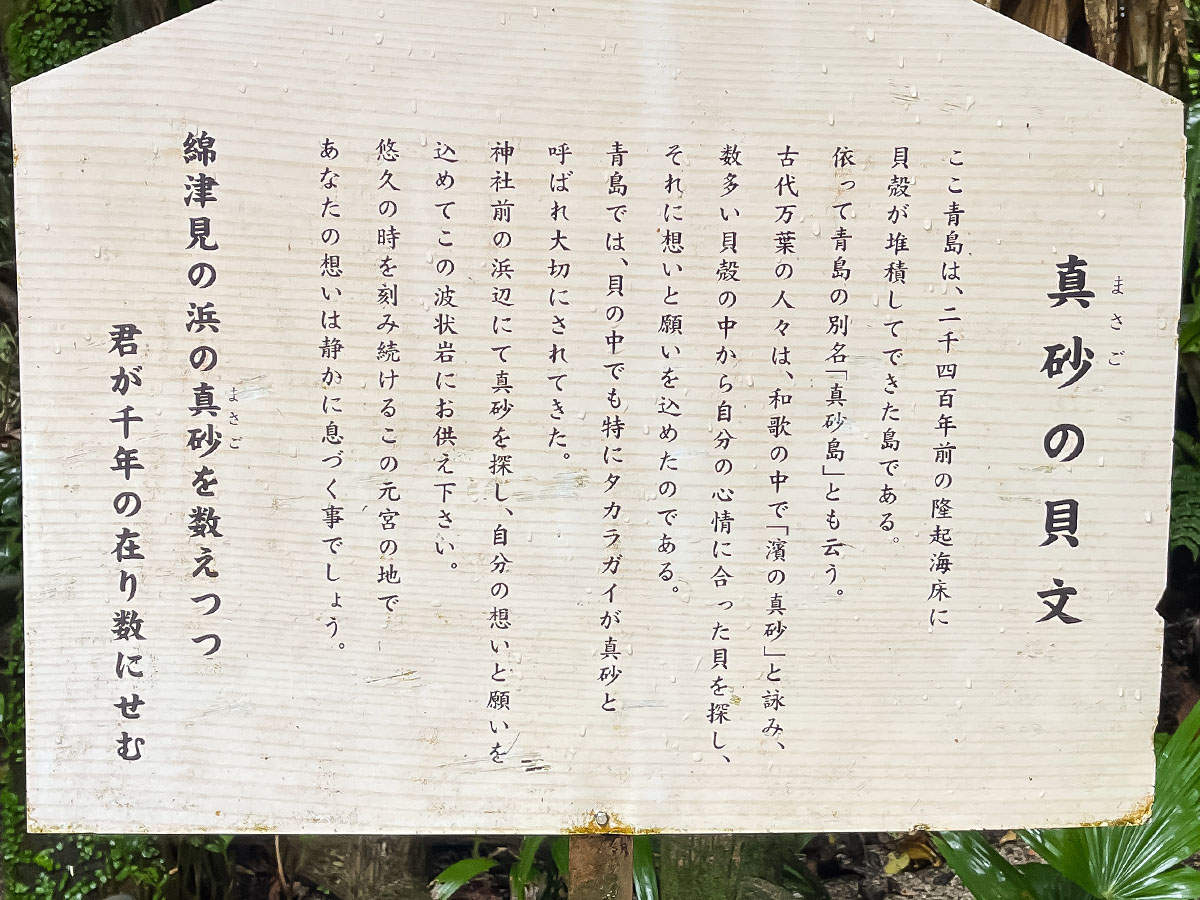 真砂の貝文
まさご
ここ青島は、二千四百年前の隆起海床に
貝殻が堆積してできた島である。
依って青島の別名「真砂島」とも云う。
古代万葉の人々は、和歌の中で「濱の真砂」と詠み、
数多い貝殻の中から自分の心情に合った貝を探し、
それに想いと願いを込めたのである。
青島では、貝の中でも特にタカラガイが真砂と
呼ばれ大切にされてきた。
神社前の浜辺にて真砂を探し、自分の想いと願いを
込めてこの波状岩にお供え下さい。
悠久の時を刻み続けるこの元宮の地で
あなたの想いは静かに息づく事でしょう。
綿津見の浜の真砂を数えつつ
まさご
君が千年の在り数にせむ